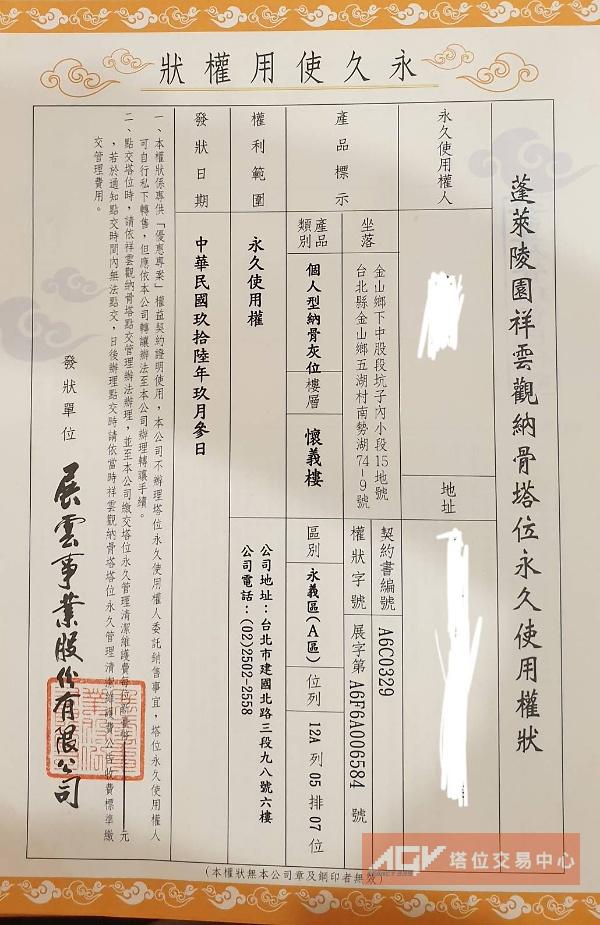 永久使用權狀
蓬萊陵園祥雲觀納骨塔位永久使用權狀
永久使用權人
地址
產品標示
坐落
金山鄉下中股段坑子內小段15地號
台北縣金山鄉五湖村南勢湖74-9號
契約書編號
A6C0329
權狀字號
展字第 A6F6A006584 號
產品類別
個人型納骨灰位
樓層
懷義樓
區別
永義區(A區)
位列
12A 列 05 排 07 位
權利範圍
永久使用權
公司地址：台北市建國北路三段九八號六樓
公司電話：(02)2502-2558
發狀日期
中華民國玖拾陸年玖月參日
一、本權狀係專供「優惠專案」權益契約證明使用，本公司不辦理塔位永久使用權人委託銷售事宜，塔位永久使用權人
可自行私下轉售，但應依本公司轉讓辦法至本公司辦理轉讓手續。
二、點交塔位時，請依祥雲觀納骨塔點交管理辦法辦理，並至本公司繳交塔位永久管理清潔維護費每位新臺幣 元
，若於通知點交時間內無法點交，日後辦理點交時請依當時祥雲觀納骨塔塔位永久管理清潔維護費公告收費標準繳
交管理費用。
發狀單位
展雲事業股份有限公司
(本權狀無本公司章及鋼印者無效)
AGV 塔位交易中心